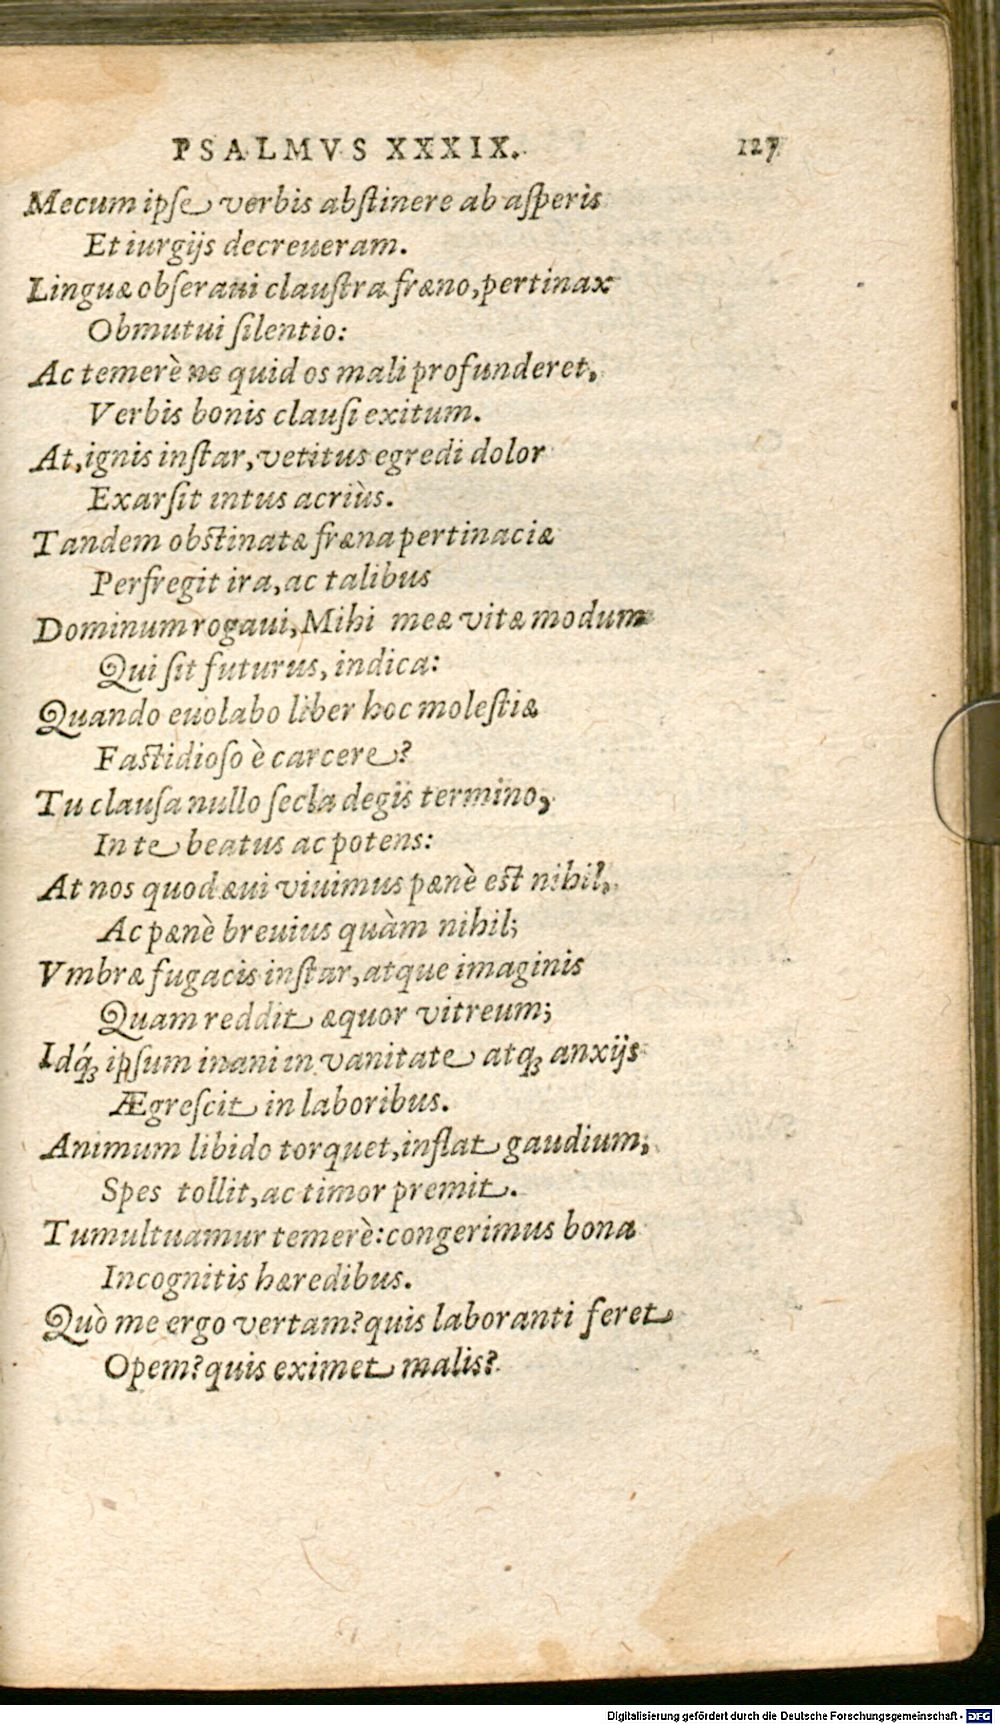 PSALMVS XXXIX. 127
Mecum ipse verbis abstinere ab asperis
Et iurgijs decreueram.
Linguæ obseraui claustra fræno, pertinax
Obmutui silentio:
Ac temerè ne quid os mali profunderet,
Verbis bonis clausi exitum.
At, ignis instar, vetitus egredi dolor
Exarsit intus acriùs.
Tandem obstinatæ fræna pertinaciæ
Perfregit ira, ac talibus
Dominum rogaui, Mihi meæ vitæ modum
Qui sit futurus, indica:
Quando euolabo liber hoc molestiæ
Fastidioso è carcere?
Tu clausa nullo secla degis termino,
In te beatus ac potens:
At nos quod æui viuimus pænè est nihil,
Ac pænè breuius quàm nihil;
Vmbræ fugacis instar, atque imaginis
Quam reddit æquor vitreum;
Idq́; ipsum inani in vanitate atq; anxijs
Ægrescit in laboribus.
Animum libido torquet, inflat gaudium,
Spes tollit, ac timor premit.
Tumultuamur temerè: congerimus bona
Incognitis hæredibus.
Quò me ergo vertam? quis laboranti feret
Opem? quis eximet malis?
Digitalisierung gefördert durch die Deutsche Forschungsgemeinschaft - DFG